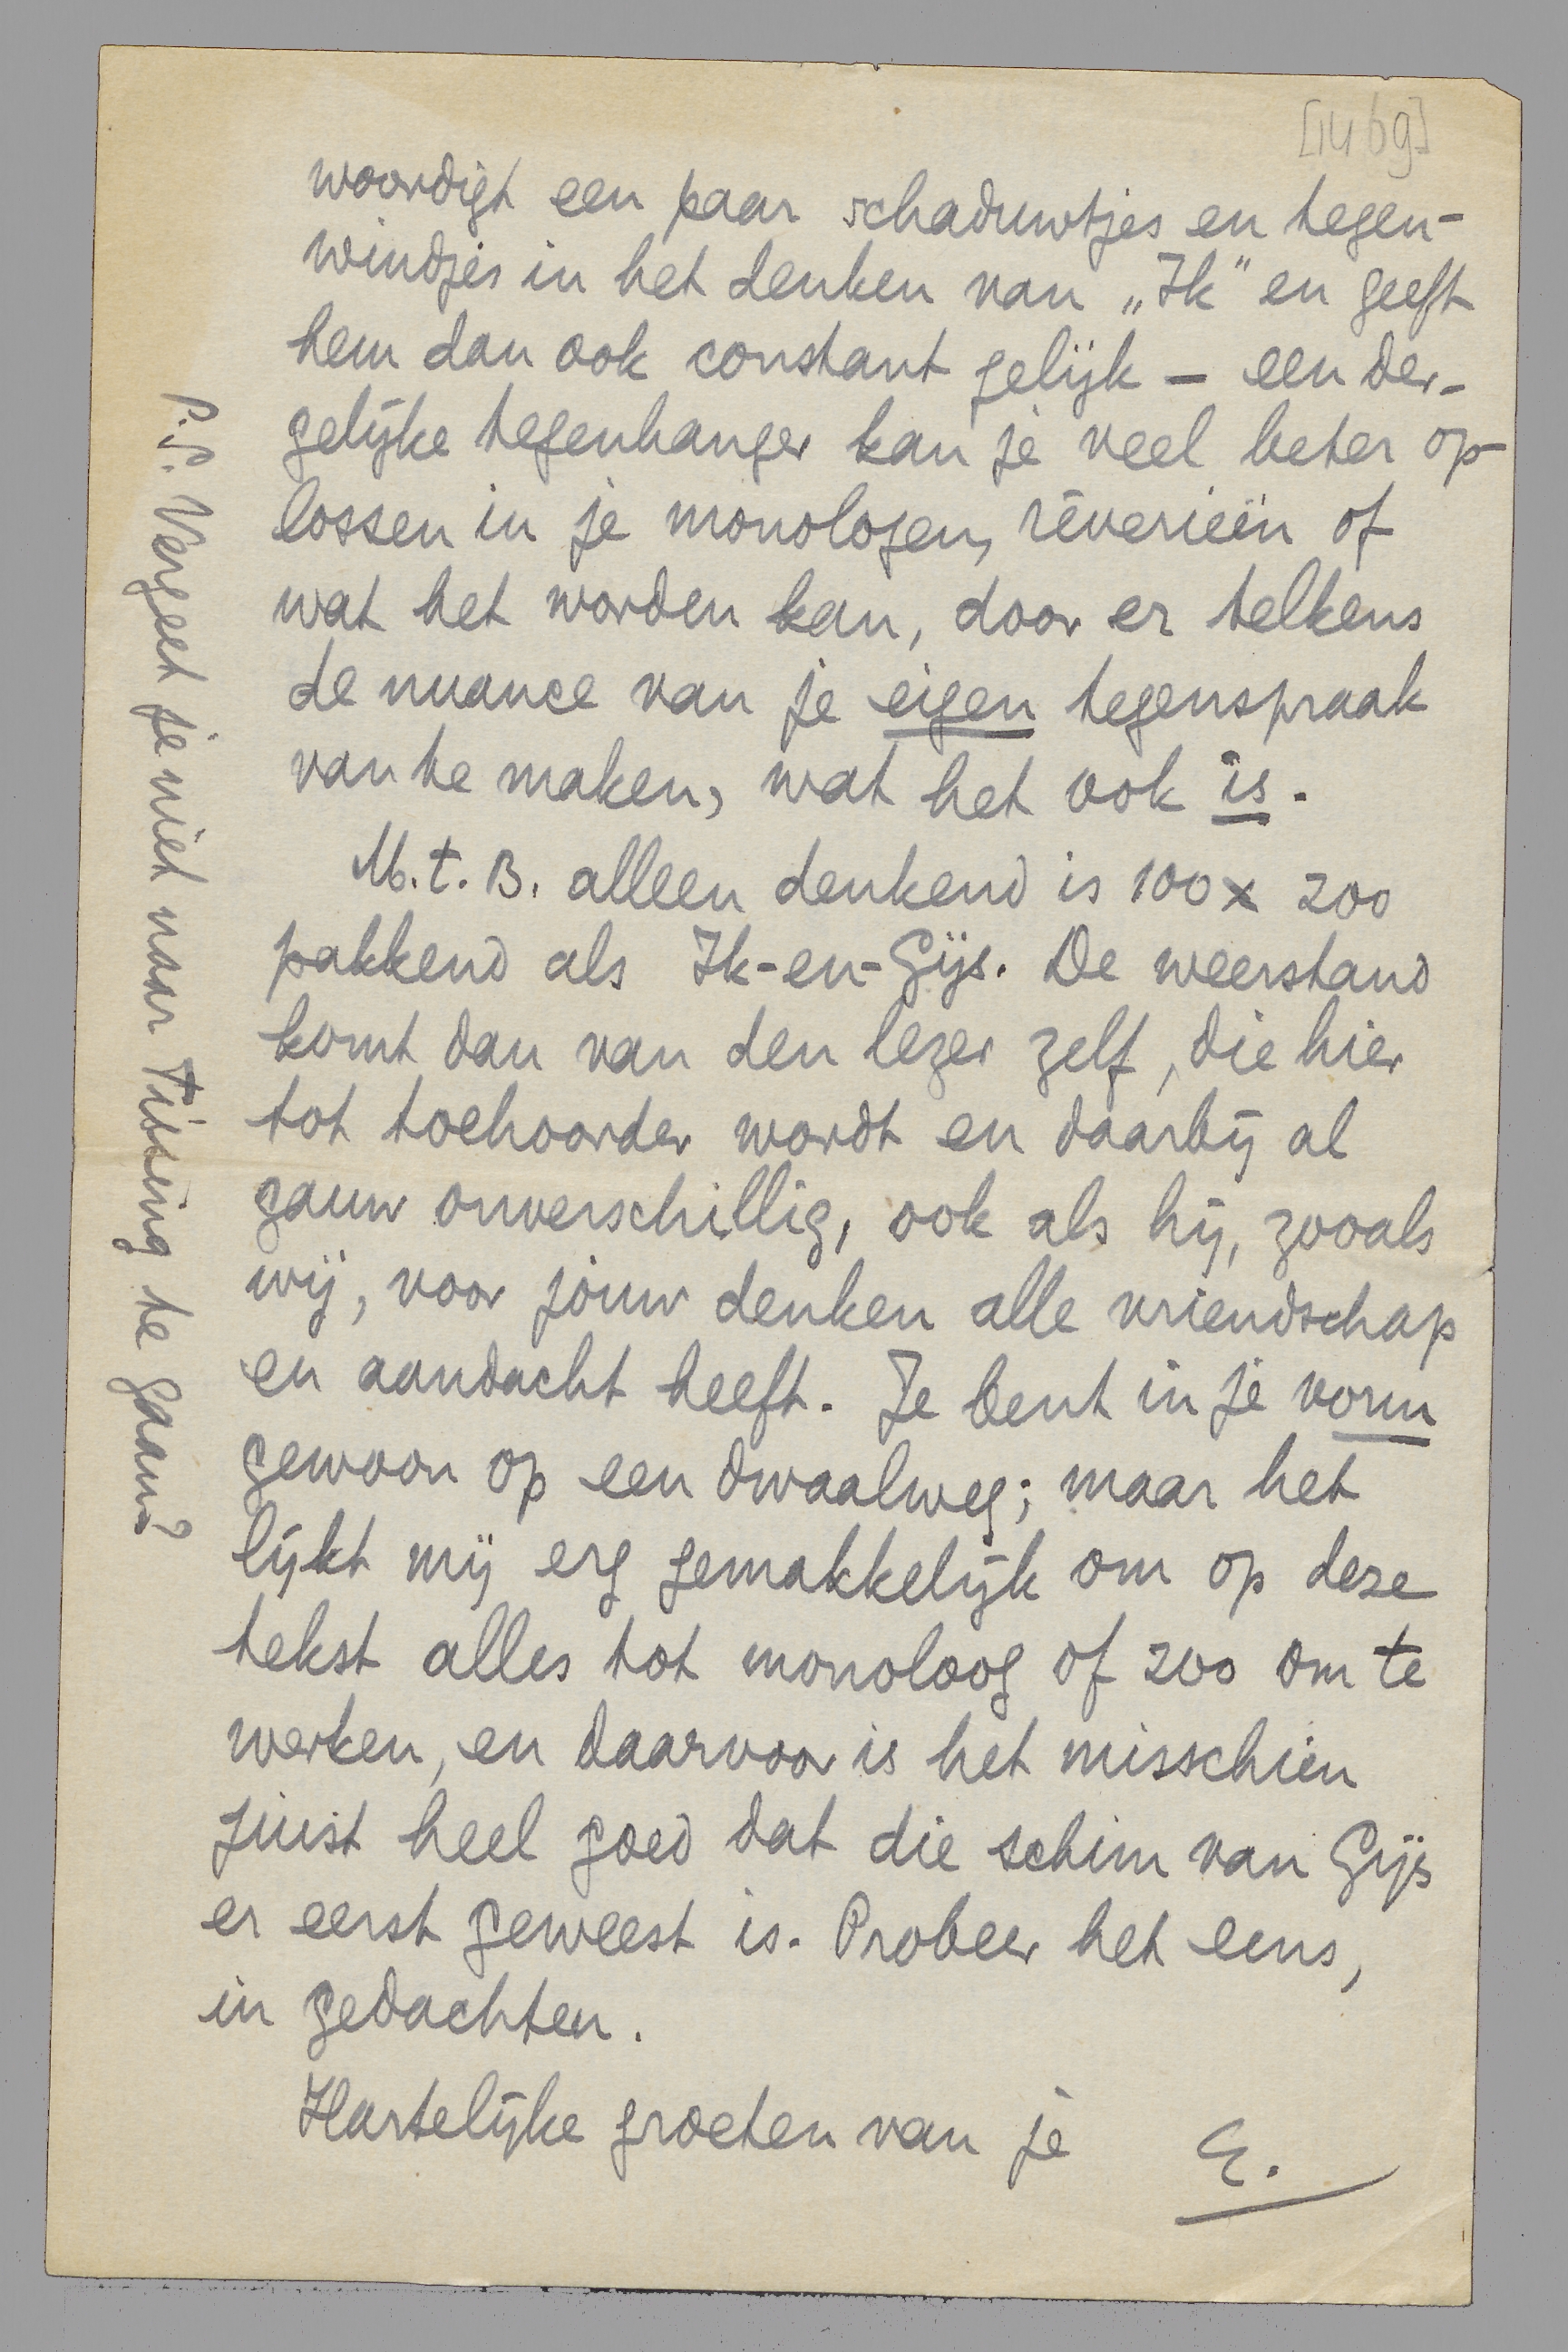 [1469]
woordigt een paar schaduwtjes en tegen-
windjes in het denken van „Ik" en geeft
hem dan ook constant gelijk – een der-
gelijke tegenhanger kan je veel beter op-
lossen in je monologen, rêverieën of
wat het worden kan, door er telkens
de nuance van je eigen tegenspraak
van te maken, wat het ook is.
M.t.B. alleen denkend is 100 x zoo
pakkend als Ik-en-Gijs. De weerstand
komt dan van den lezer zelf, die hier
tot toehoorder wordt en daarbij al
gauw onverschillig, ook als hij, zooals
wij, voor jouw denken alle vriendschap
en aandacht heeft. Je bent in je vorm
gewoon op een dwaalweg; maar het
lijkt mij erg gemakkelijk om op deze
tekst alles tot monoloog of zoo om te
werken, en daarvoor is het misschien
juist heel goed dat die schim van Gijs
er eerst geweest is. Probeer het eens,
in gedachten.
Hartelijke groeten van je E.
P.S. Vergeet je niet naar Tissing te gaan?